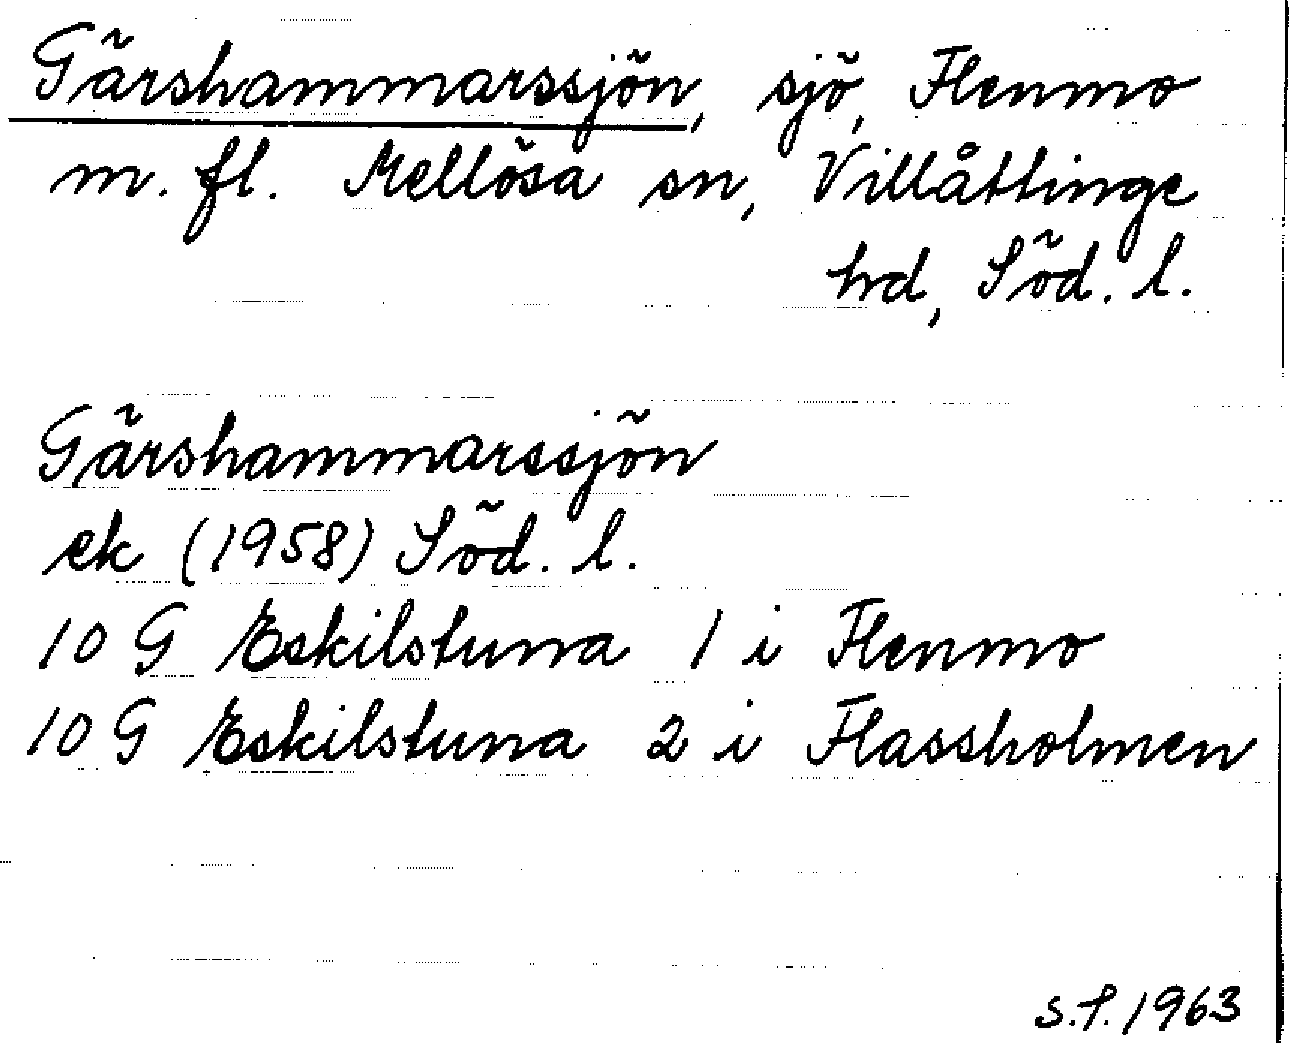 Gärshammarssjön, sjö, Flenmo
m. fl. Mellösa sn, Villåttinge
hd, Söd. l.
Gärshammarssjön
ek (1958) Söd. l.
10 G Eskilstuna 1 i Flenmo
10 G Eskilstuna 2 i Flassholmen
S.P. 1963